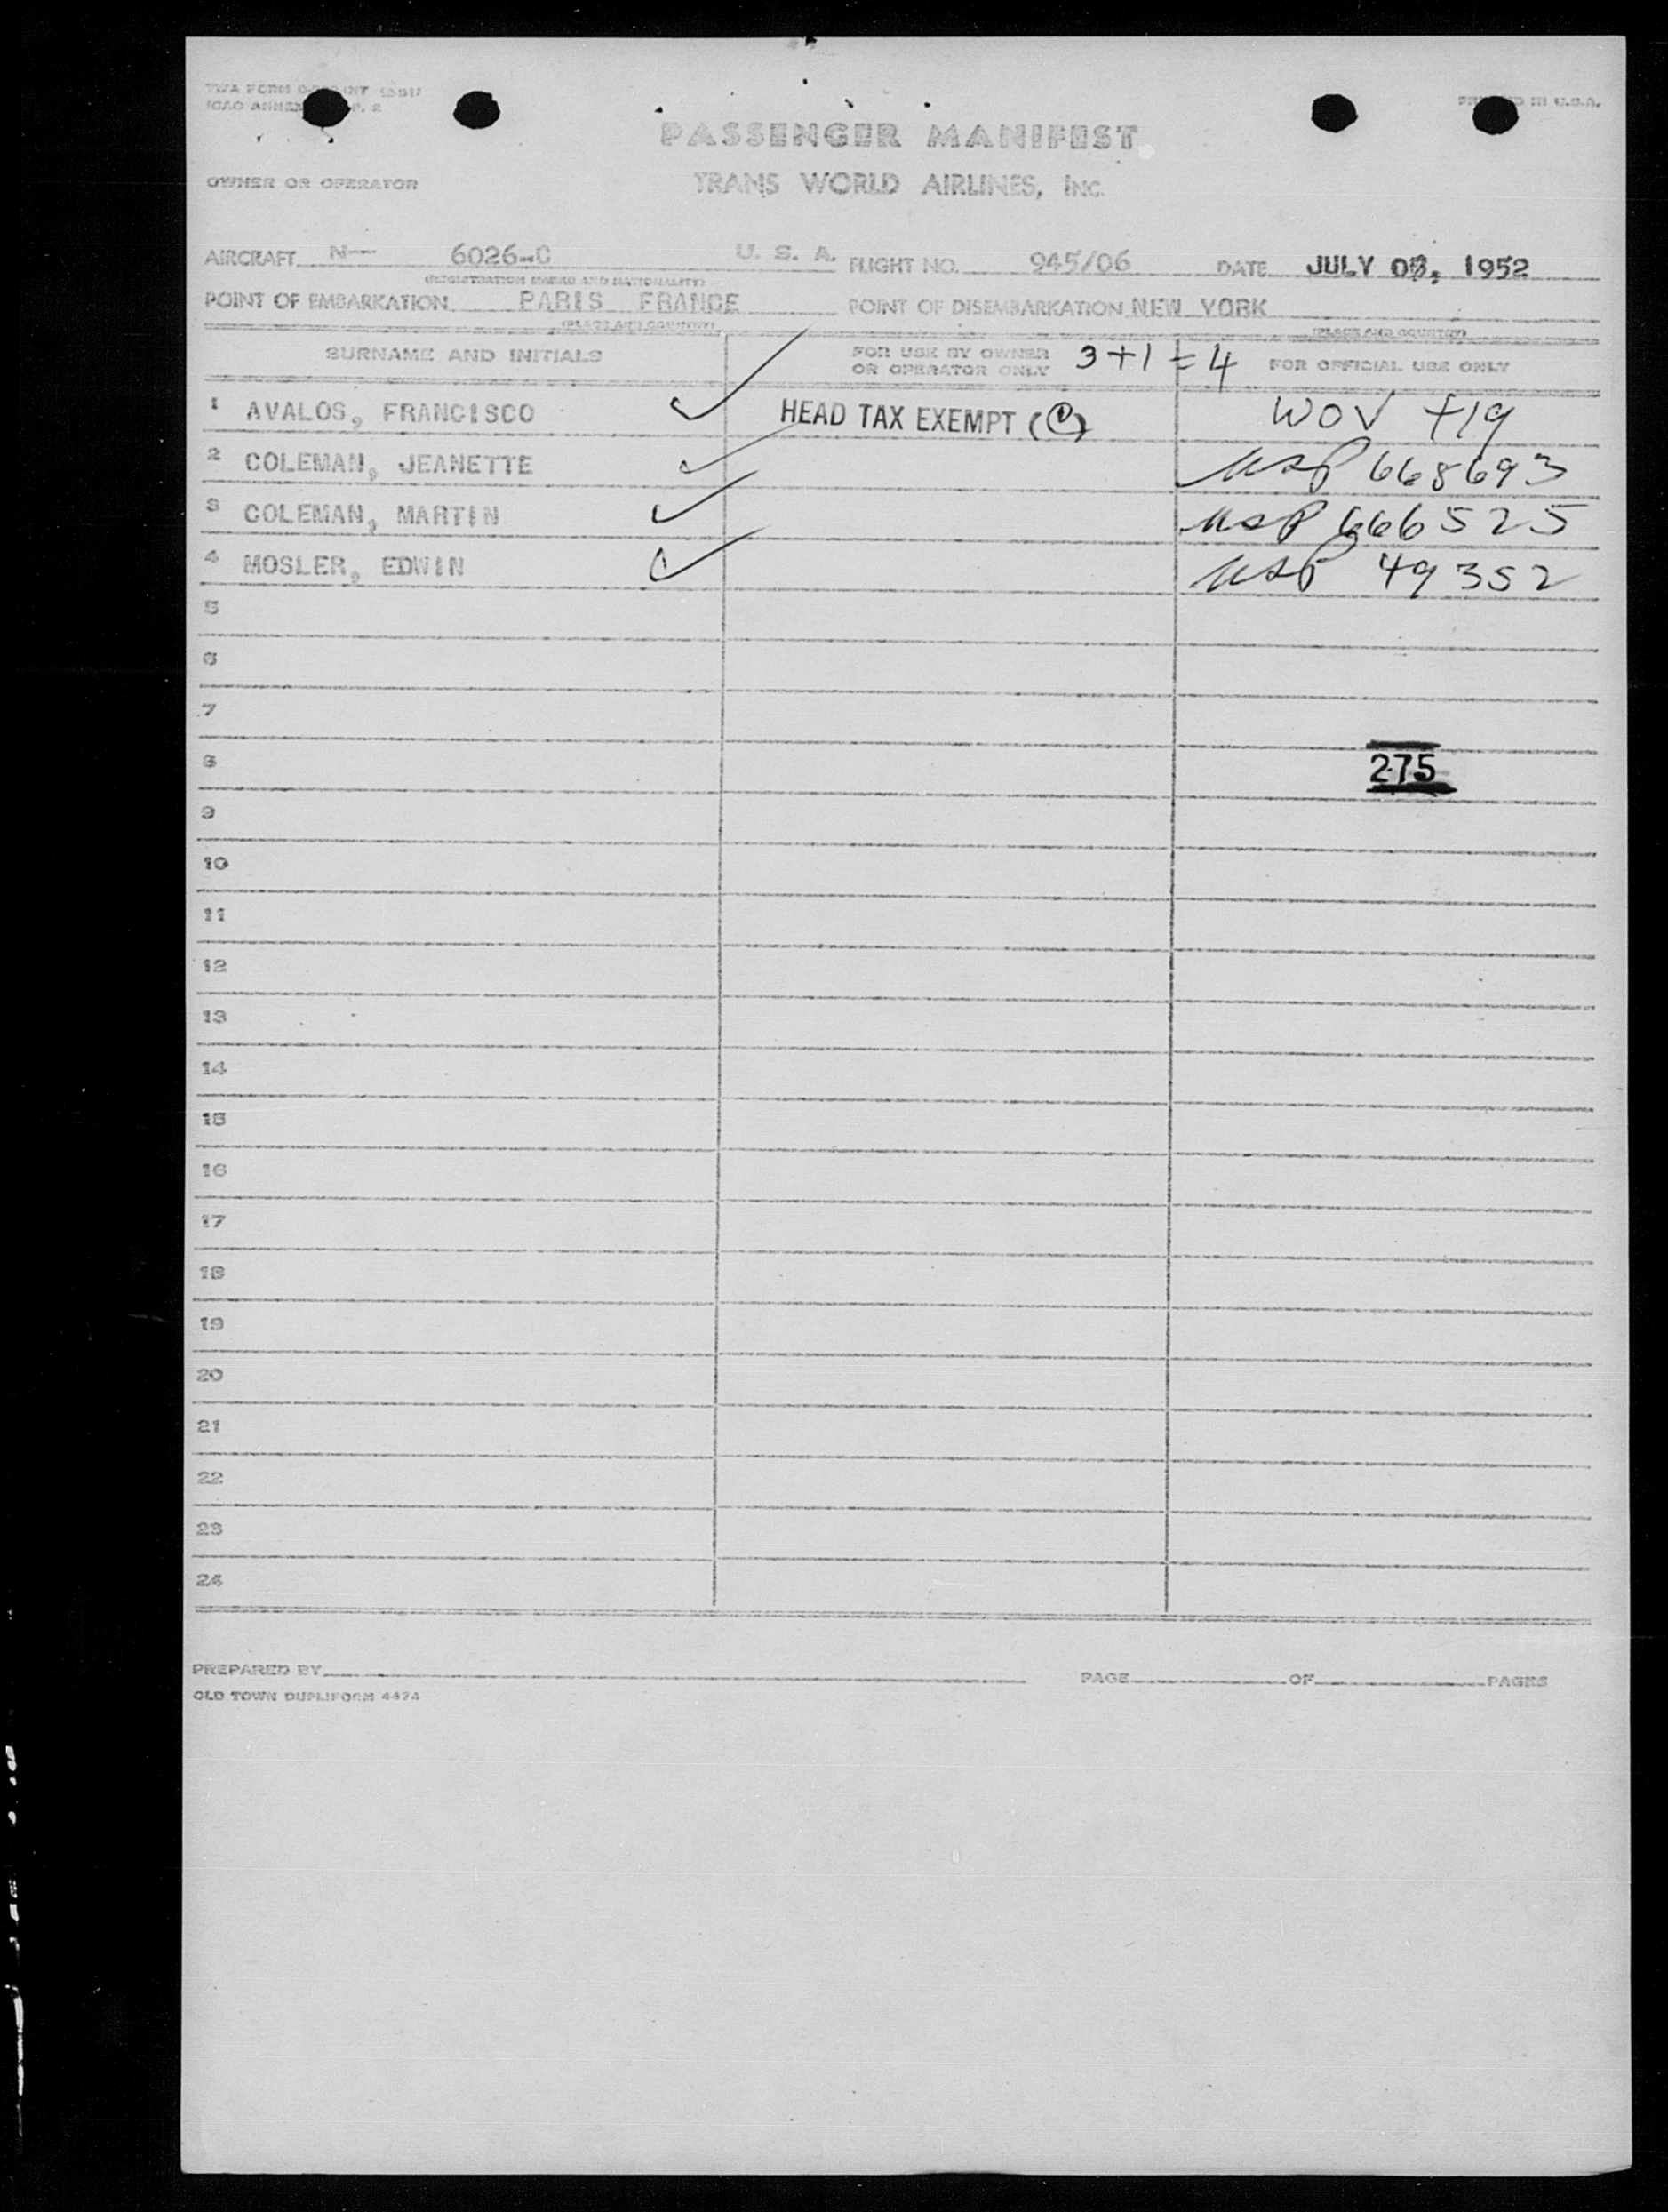 TWA FORM
ICAO ANNEX P. 2
PRINTED IN U.S.A.
PASSENGER MANIFEST
OWNER OR OPERATOR TRANS WORLD AIRLINES, INC.
AIRCRAFT N— 6026-C U. S. A. FLIGHT NO. 945/06 DATE JULY 1952
(REGISTRATION MARKS AND NATIONALITY)
POINT OF EMBARKATION PARIS FRANCE POINT OF DISEMBARKATION NEW YORK
(PLACE AND COUNTRY) (PLACE AND COUNTRY)
SURNAME AND INITIALS FOR USE BY OWNER OR OPERATOR ONLY 3+1=4 FOR OFFICIAL USE ONLY
1 AVALOS, FRANCISCO HEAD TAX EXEMPT WOV +19
2 COLEMAN, JEANETTE USP 668693
3 COLEMAN, MARTIN USP 666525
4 MOSLER, EDWIN USP 49352
5
6
7
8 275
9
10
11
12
13
14
15
16
17
18
19
20
21
22
23
24
PREPARED BY PAGE OF PAGES
OLD TOWN DUPLIFORM 4474